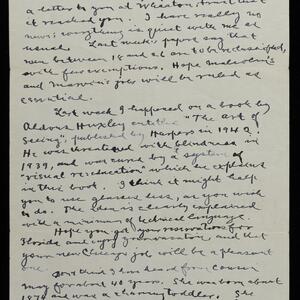 a letter to you at Wheaton, trust that
it reached you. I have really no
news, everything is quiet with me as
usual. Last week's papers say that
men between 18 and
with few exemptions. Hope Malcolm's
and Marvin's jobs will be ruled as
essential.
Last week I happened on a book by
Aldous Huxley entitled "The Art of
Seeing", published by Harpers in 1942.
He was threatened with blindness in
1939, and was cured by a system of
"visual reeducation" which he explains
in this book. I think it might help
you to use glasses less, as you wish
to do. The plan is clearly explained
with a minimum of technical language.
Hope you get your reservations for
Florida and enjoy your vacation, and that
your new Chicago job will be a pleasant
one.
I heard from Cousin
May for about 40 years. She was born about
1870 and was a charming toddler. She